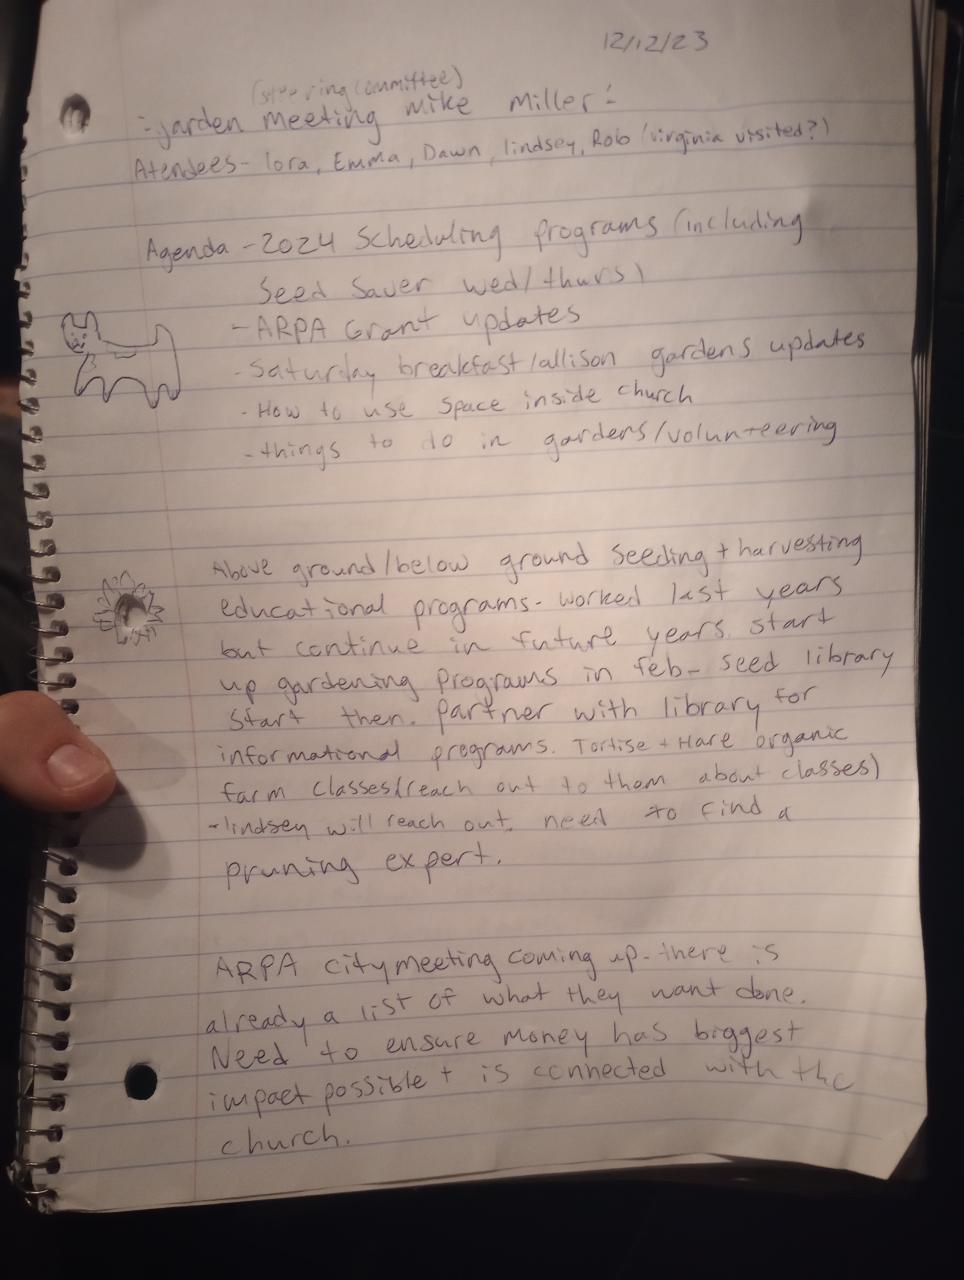 12/12/23
(steering committee)
- garden meeting Mike Miller -
Atendees - lora, Emma, Dawn, lindsey, Rob (virginia visited?)
Agenda - 2024 Scheduling programs (including
Seed Saver wed/thurs)
- ARPA Grant updates
- Saturday breakfast/allison gardens updates
- How to use space inside church
- things to do in gardens/volunteering
Above ground/below ground seeding + harvesting
educational programs - worked last years
but continue in future years. start
up gardening programs in feb - seed library
start then. partner with library for
informational programs. Tortise + Hare organic
farm classes (reach out to them about classes)
- lindsey will reach out. need to find a
pruning expert.
ARPA city meeting coming up - there is
already a list of what they want done.
Need to ensure money has biggest
impact possible + is connected with the
church.